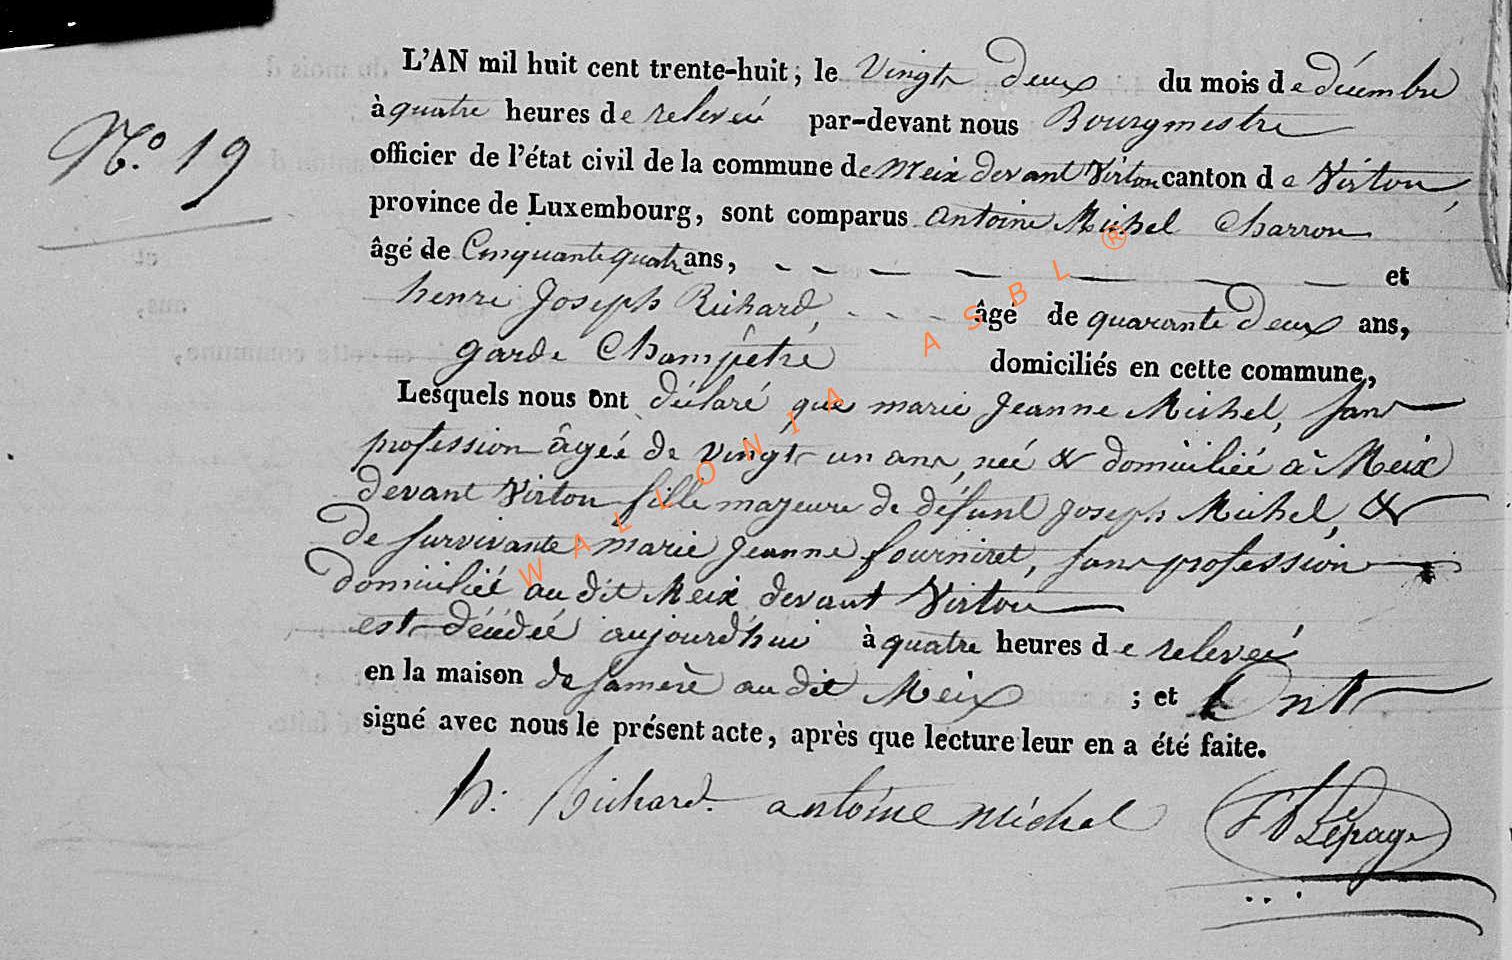 L'AN mil huit cent trente-huit ; le Vingt deux du mois de décembre
à quatre heures de relevée par-devant nous Bourgmestre
N.º 19
officier de l'état civil de la commune de Meix devant Virton canton de Virton,
province de Luxembourg, sont comparus antoine Michel Charron
âgé de Cinquante quatre ans, et
henri Joseph Richard, âgé de quarante deux ans,
garde Champêtre domiciliés en cette commune,
Lesquels nous ont déclaré que marie Jeanne Michel, sans
profession âgée de vingt un ans, née & domiciliée à Meix
devant Virton fille majeure de défunt Joseph Michel, &
de survivante marie Jeanne fourniret, sans profession
domiciliée au dit Meix devant Virton
est décédée aujourd'hui à quatre heures de relevée
en la maison de sa mère au dit Meix ; et Ont
signé avec nous le présent acte, après que lecture leur en a été faite.
h. Richard. antoine Michel Lepage
WALLONIA ASBL ®